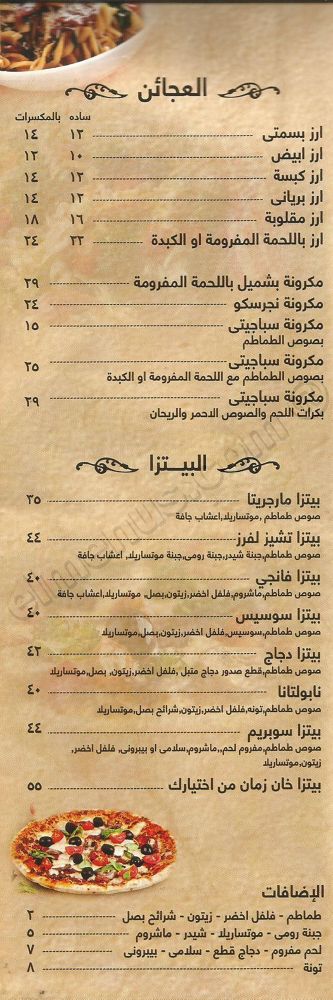 العجائن
ساده بالمكسرات
ارز بسمتى ١٢ ١٤
ارز ابيض ١٠ ١٢
ارز كبسة ١٢ ١٤
ارز بريانى ١٢ ١٤
ارز مقلوبة ١٦ ١٨
ارز باللحمة المفرومة او الكبدة ٢٢ ٢٤
مكرونة بشميل باللحمة المفرومة ٢٩
مكرونة نجرسكو ٢٤
مكرونة سباجيتى ١٥
بصوص الطماطم
مكرونة سباجيتى ٢٥
بصوص الطماطم مع اللحمة المفرومة او الكبدة
مكرونة سباجيتى ٢٩
بكرات اللحم والصوص الاحمر والريحان
البيتزا
بيتزا مارجريتا ٣٥
صوص طماطم ,موتساريلا, اعشاب جافة
بيتزا تشيز لفرز ٤٤
صوص طماطم,جبنة شيدر,جبنة رومى,جبنة موتساريلا, اعشاب جافة
بيتزا فانجي ٤٠
صوص طماطم,ماشروم,فلفل اخضر,زيتون,بصل, موتساريلا,اعشاب جافة
بيتزا سوسيس ٤٠
صوص طماطم,سوسيس,فلفل اخضر,زيتون,بصل,موتساريلا
بيتزا دجاج ٤٢
صوص طماطم,قطع صدور دجاج متبل ,فلفل اخضر,زيتون, بصل,موتساريلا
نابولتانا ٤٠
صوص طماطم,تونه,فلفل اخضر,زيتون,شرائح بصل,موتساريلا
بيتزا سوبريم ٤٤
صوص طماطم,مفروم لحم,,ماشروم,سلامى او بيبرونى, فلفل اخضر,
زيتون,موتساريلا
بيتزا خان زمان من اختيارك ٥٥
الإضافات
طماطم - فلفل اخضر - زيتون - شرائح بصل ٢
جبنة رومى - موتساريلا - شيدر - ماشروم ٥
لحم مفروم - دجاج قطع - سلامى - بيبرونى ٧
تونة ٨